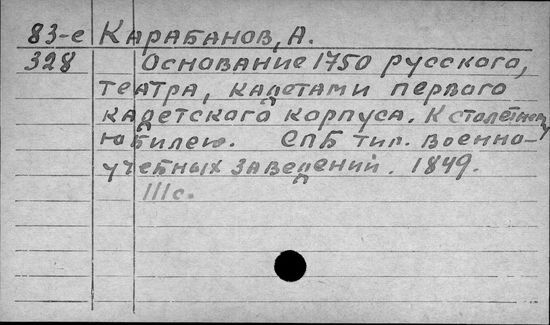 83-е Карабанов, А.
328 Основание 1750 русского,
театра, кадетами первого
кадетского корпуса. К столетнему
юбилею. СПБ тип. военно-
учебных заведений. 1849.
111 с.